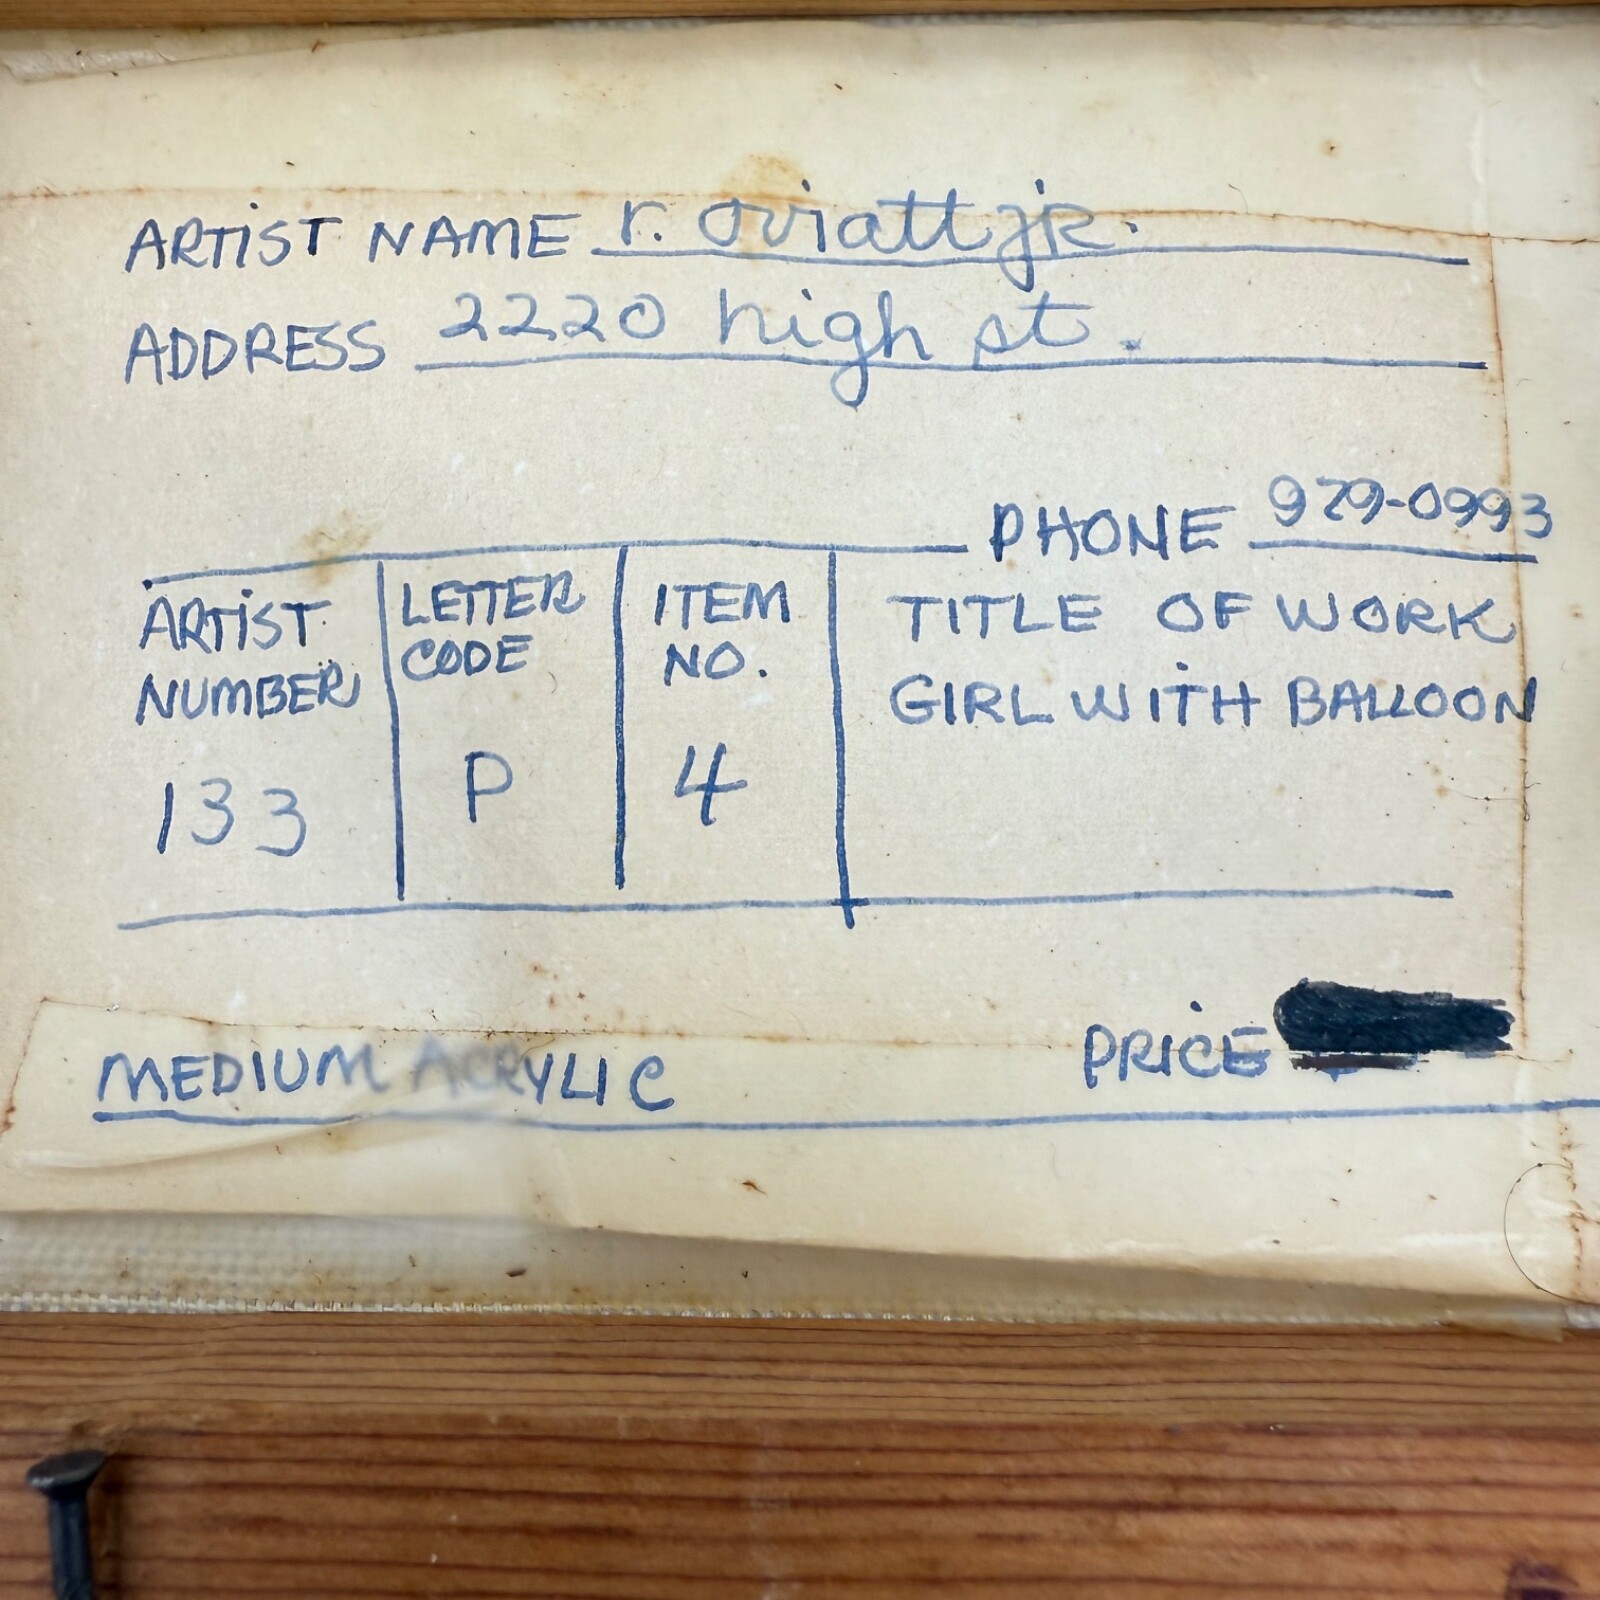 ARTIST NAME r. oviatt jr.
ADDRESS 2220 high st.
PHONE 979-0993
ARTIST NUMBER
133
LETTER CODE
P
ITEM NO.
4
TITLE OF WORK
GIRL WITH BALLOON
MEDIUM ACRYLIC PRICE